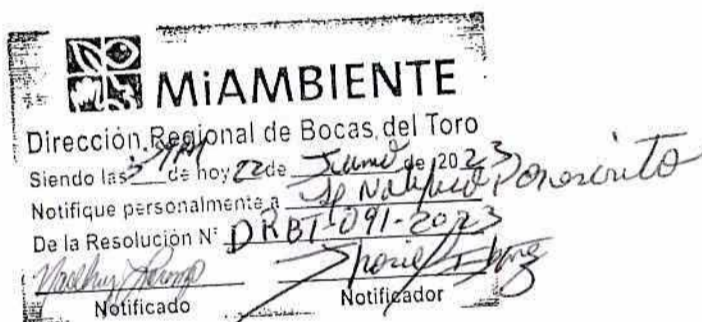 MiAMBIENTE
Dirección Regional de Bocas del Toro
Siendo las de hoy 22 de Junio de 2023
Notifique personalmente a Se Notifico Por escrito
De la Resolución N° DRBT-091-2023
Notificado Notificador